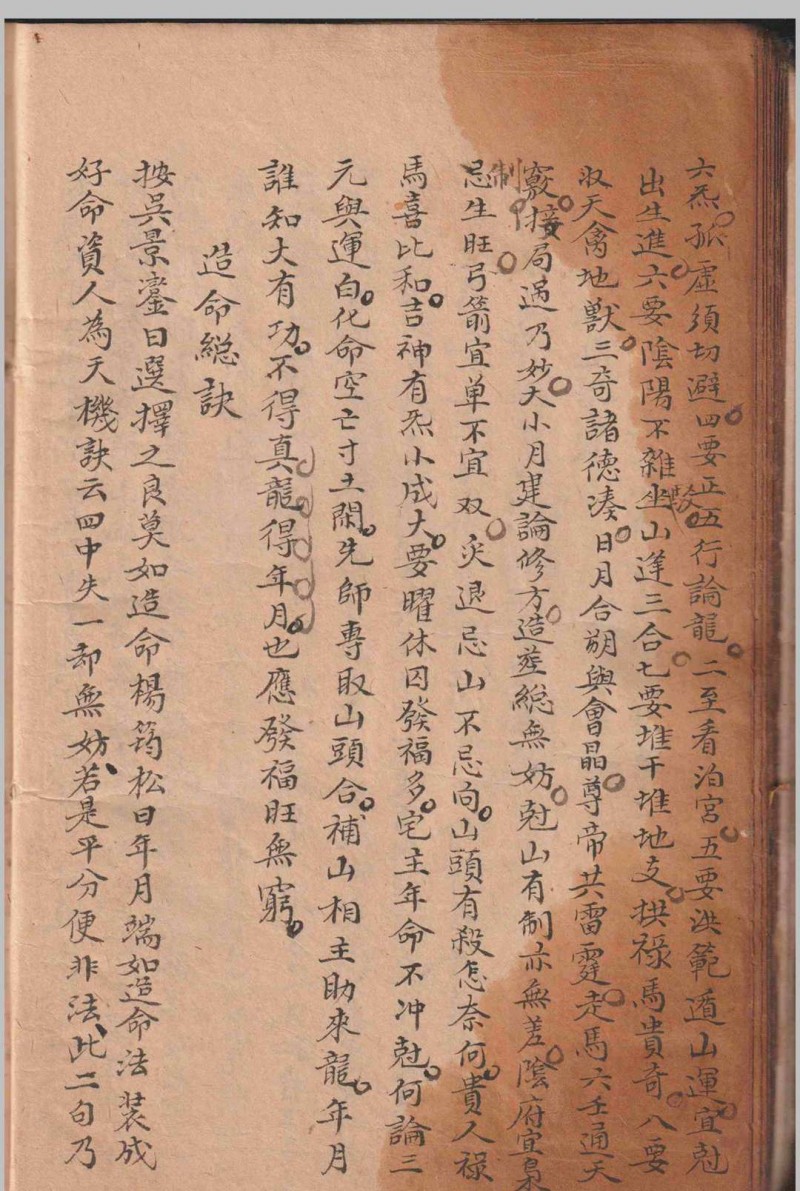 六炁孤虛須切避四要正五行論龍二至看泊宮五要洪範遁山運宜尅
出生進六要陰陽不雜坐山逢三合七要堆干堆地支拱祿馬貴奇八要
収天禽地獸三奇諸德湊日月合朔與會晶尊帝共雷霆走馬六壬通天
竅接局過乃妙大小月建論修方造葬総無妨尅山有制亦無差陰府宜
制忌生旺弓箭宜単不宜双灾退忌山不忌向山頭有殺怎奈何貴人祿
馬喜比和吉神有炁小成大要曜休囚發福多宅主年命不冲尅何論三
元與運白化命空亡寸土閑先師專取山頭合補山相主助來龍年月
誰知大有功不得真龍得年月也應發福旺無窮
造命総訣
按吳景鸞曰選擇之良莫如造命楊筠松曰年月端如造命法裝成
好命資人為天機訣云四中失一却無妨若是平分便非法此二句乃